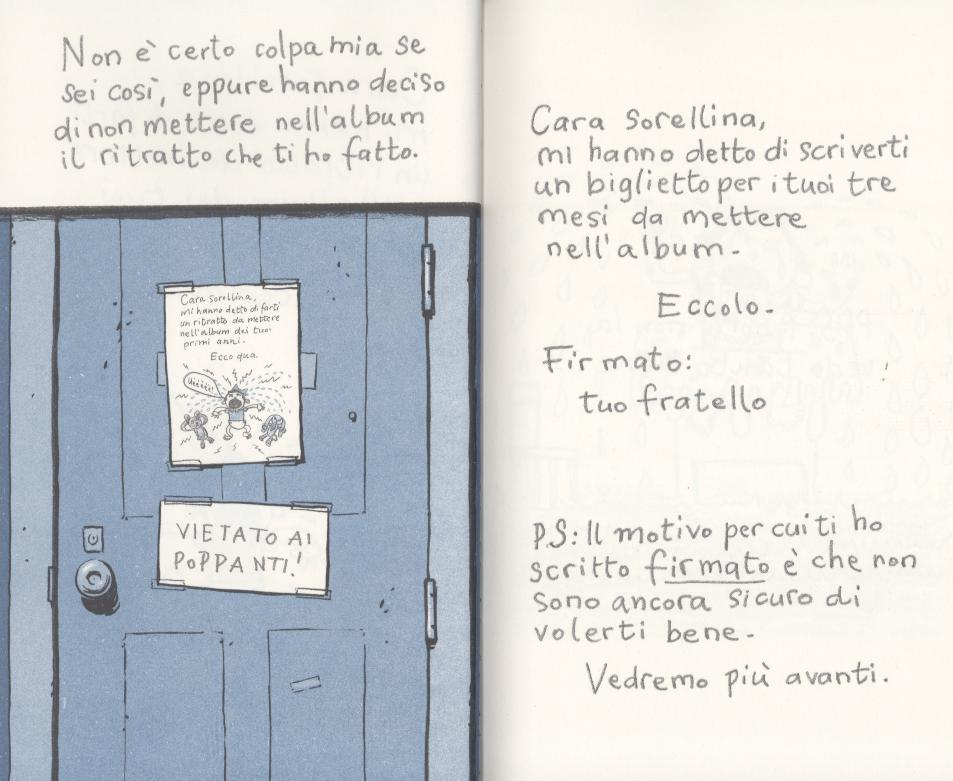 Non è certo colpa mia se
sei così, eppure hanno deciso
di non mettere nell'album
il ritratto che ti ho fatto.
Cara Sorellina,
mi hanno detto di farti
un ritratto da mettere
nell'album dei tuoi
primi anni.
Ecco qua.
Uèèèèè!
VIETATO AI
POPPANTI!
Cara Sorellina,
mi hanno detto di scriverti
un biglietto per i tuoi tre
mesi da mettere
nell'album.
Eccolo.
Firmato:
tuo fratello
P.S: Il motivo per cui ti ho
scritto firmato è che non
sono ancora sicuro di
volerti bene.
Vedremo più avanti.